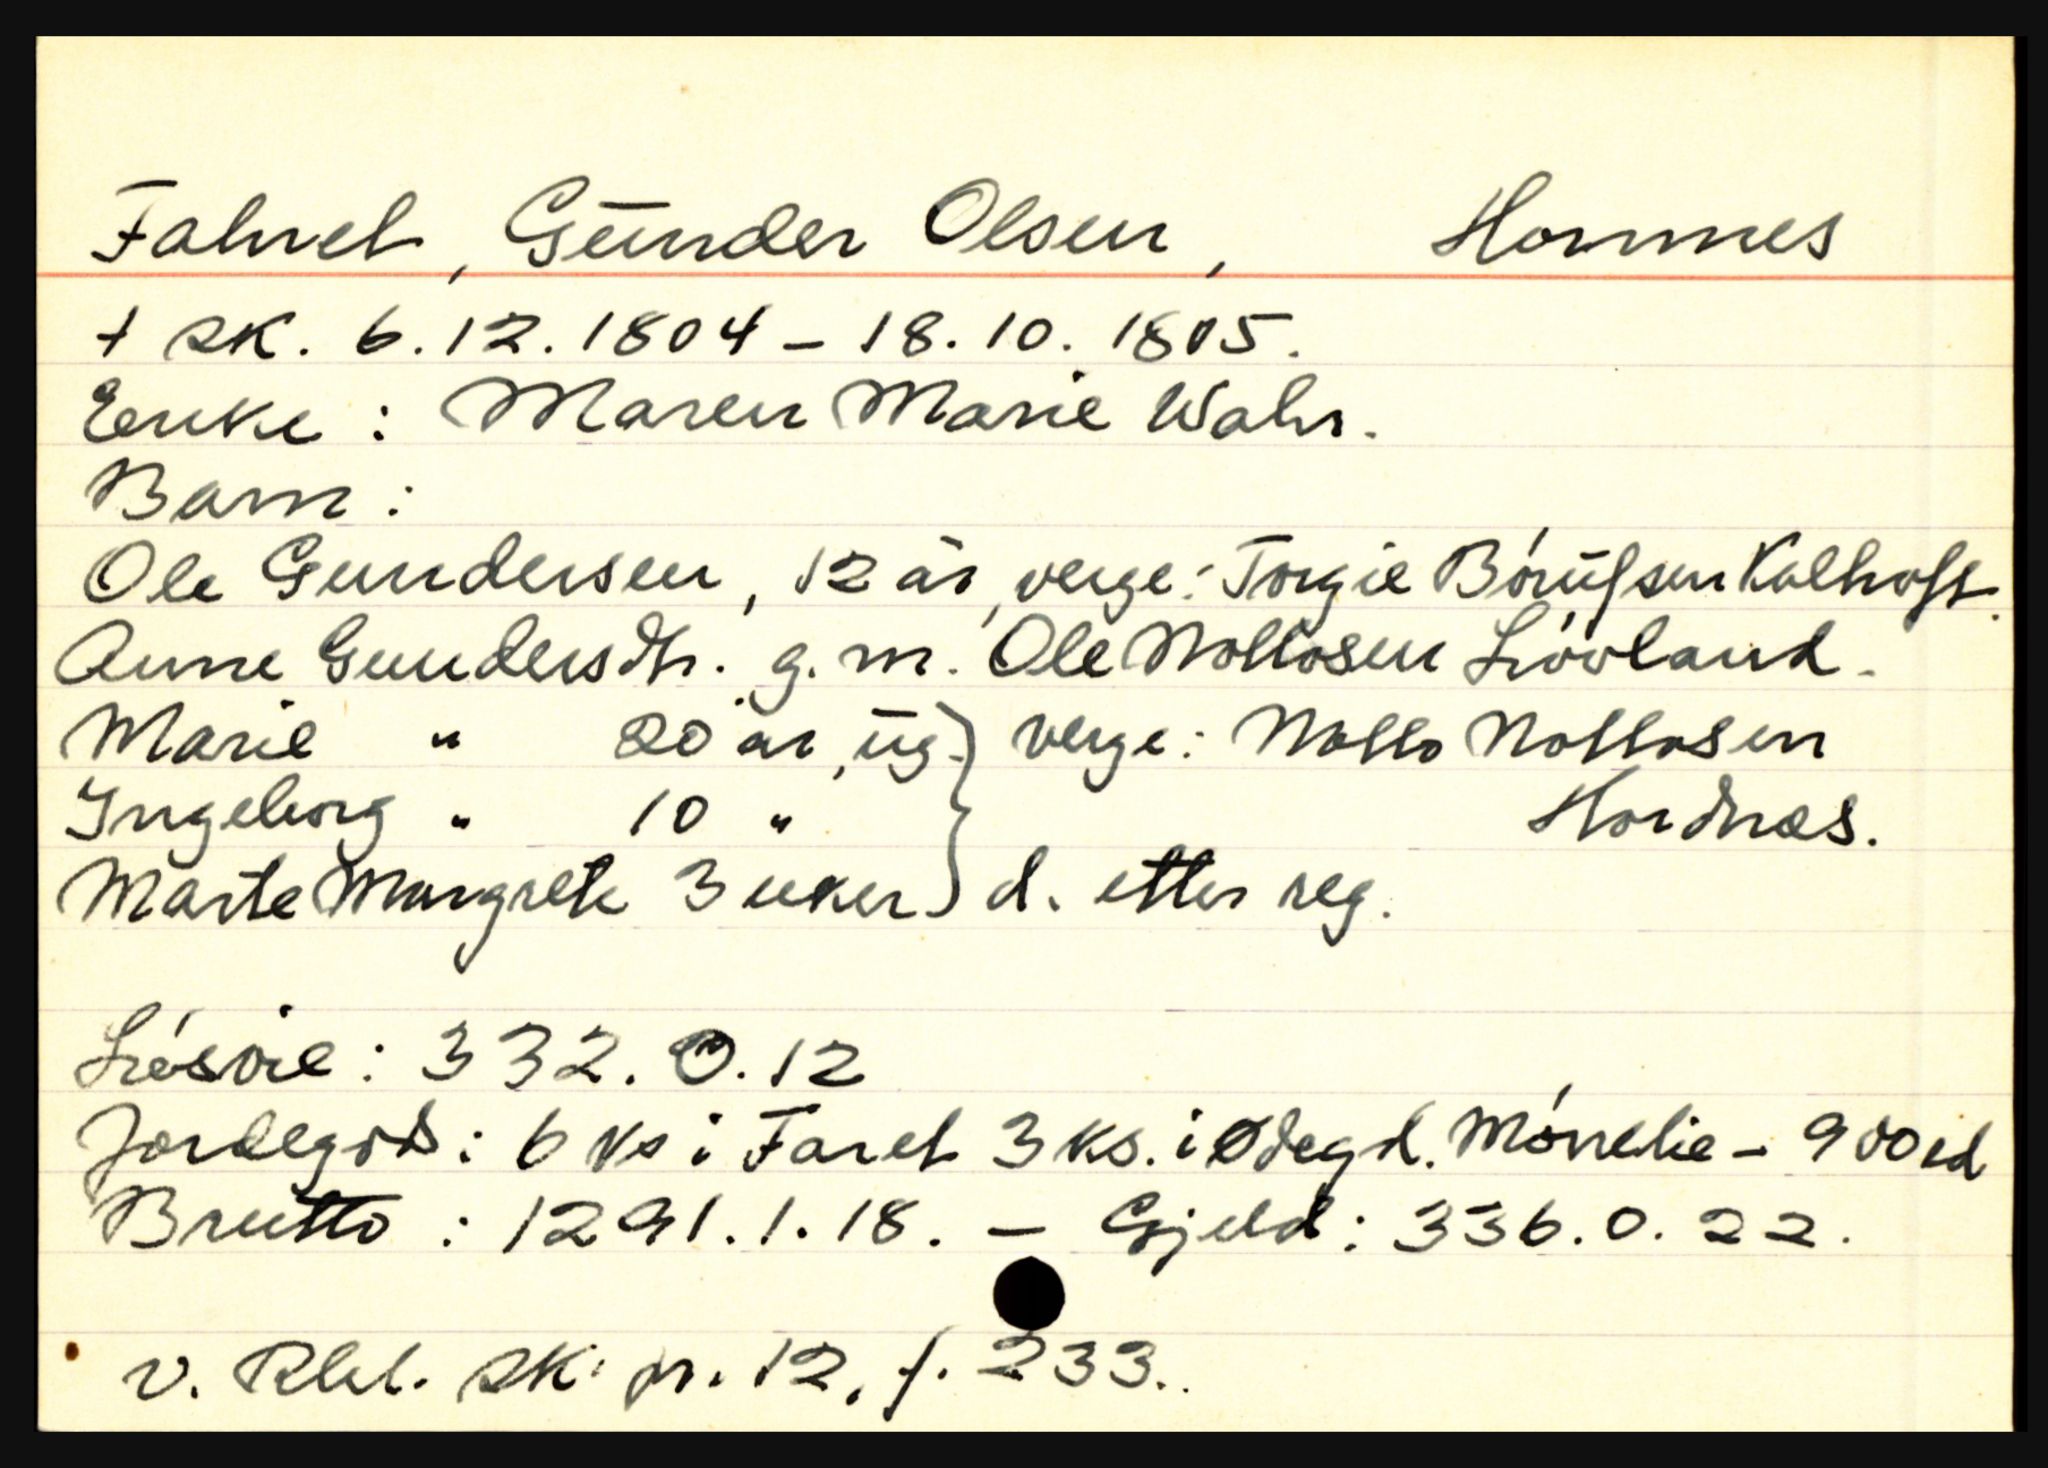 Fahret, Gunder Olsen, Hornnes
+ sk. 6.12.1804 - 18.10.1805.
Enke: Maren Marie Wahr.
Barn:
Ole Gundersen, 12 år, verge: Torgie Børufsen Kalhoft.
Anne Gundersdtr. g.m. Ole Nottosen Løvland.
Marie " 20 år, ug. } verge: Notto Nottosen
Ingeborg " 10 " } Hordnæs.
Marte Margrete 3 uker } d. etter reg.
Løsøie: 332.0.12
Jordegods: 6 ks i Faret 3 ks. i Ødegd. Mørrelie - 900 rd
Brutto: 1291.1.18. - Gjeld: 336.0.22.
v. Rbl. sk. pr. 12, f. 233.